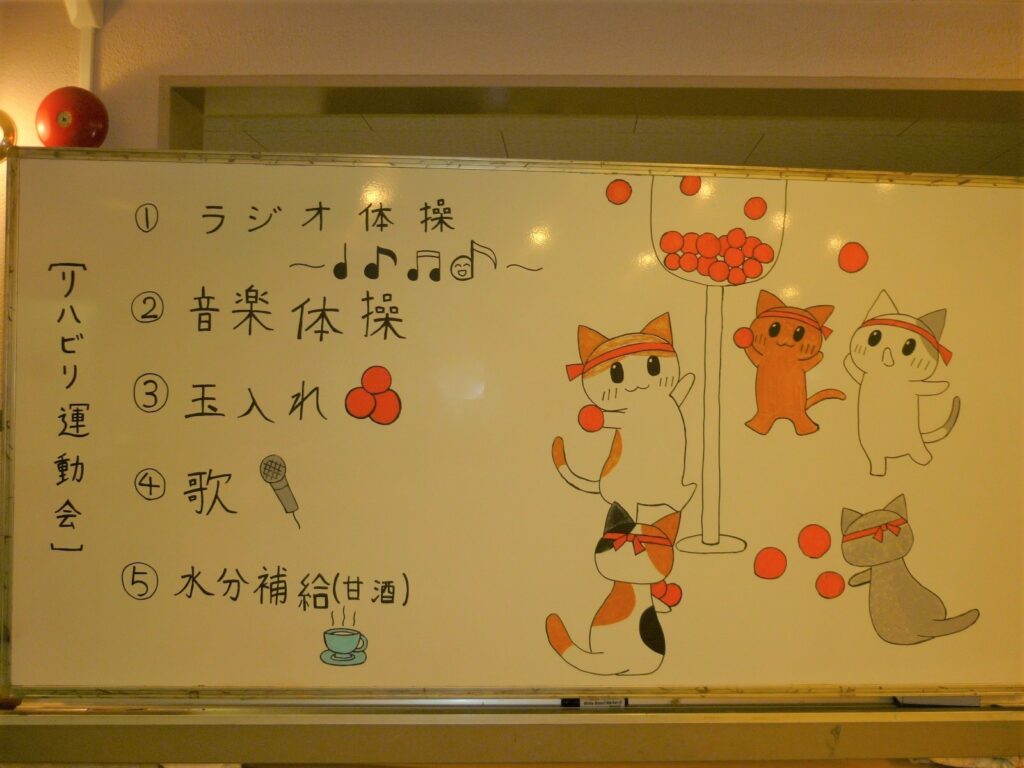 [リハビリ運動会]
① ラジオ体操
～♩♪♫♪～
② 音楽体操
③ 玉入れ
④ 歌
⑤ 水分補給(甘酒)